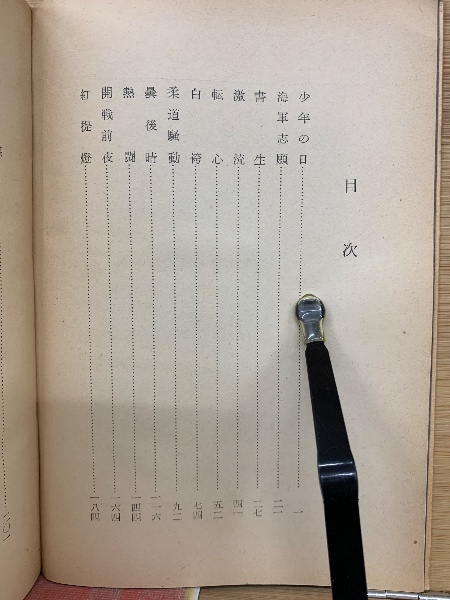 目次
少年の日 一
海軍志願 二一
書生 二七
激流 四一
転心 五二
白袴 七四
柔道騒動 九二
曇後晴 一一六
熱闘 一四四
開戦前夜 一六四
紅提燈 一八四